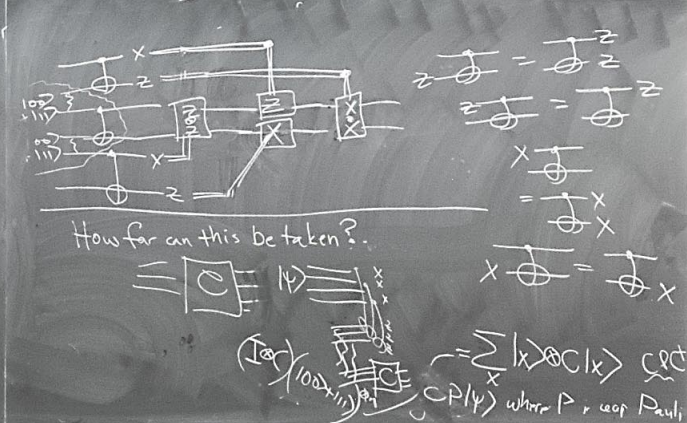 X
Z
|00>
+|11>
|00>
+|11>
Z
Z
Z
X
X
X
X
Z
Z = Z
Z
Z = Z
X
= X
X
X = X
How far can this be taken?
C |ψ> X
X
X
(I⊗C)(|00>+|11>)⊗n
C
= Σ |x>⊗C|x> CPC†
x
CP|ψ> where P is Pauli